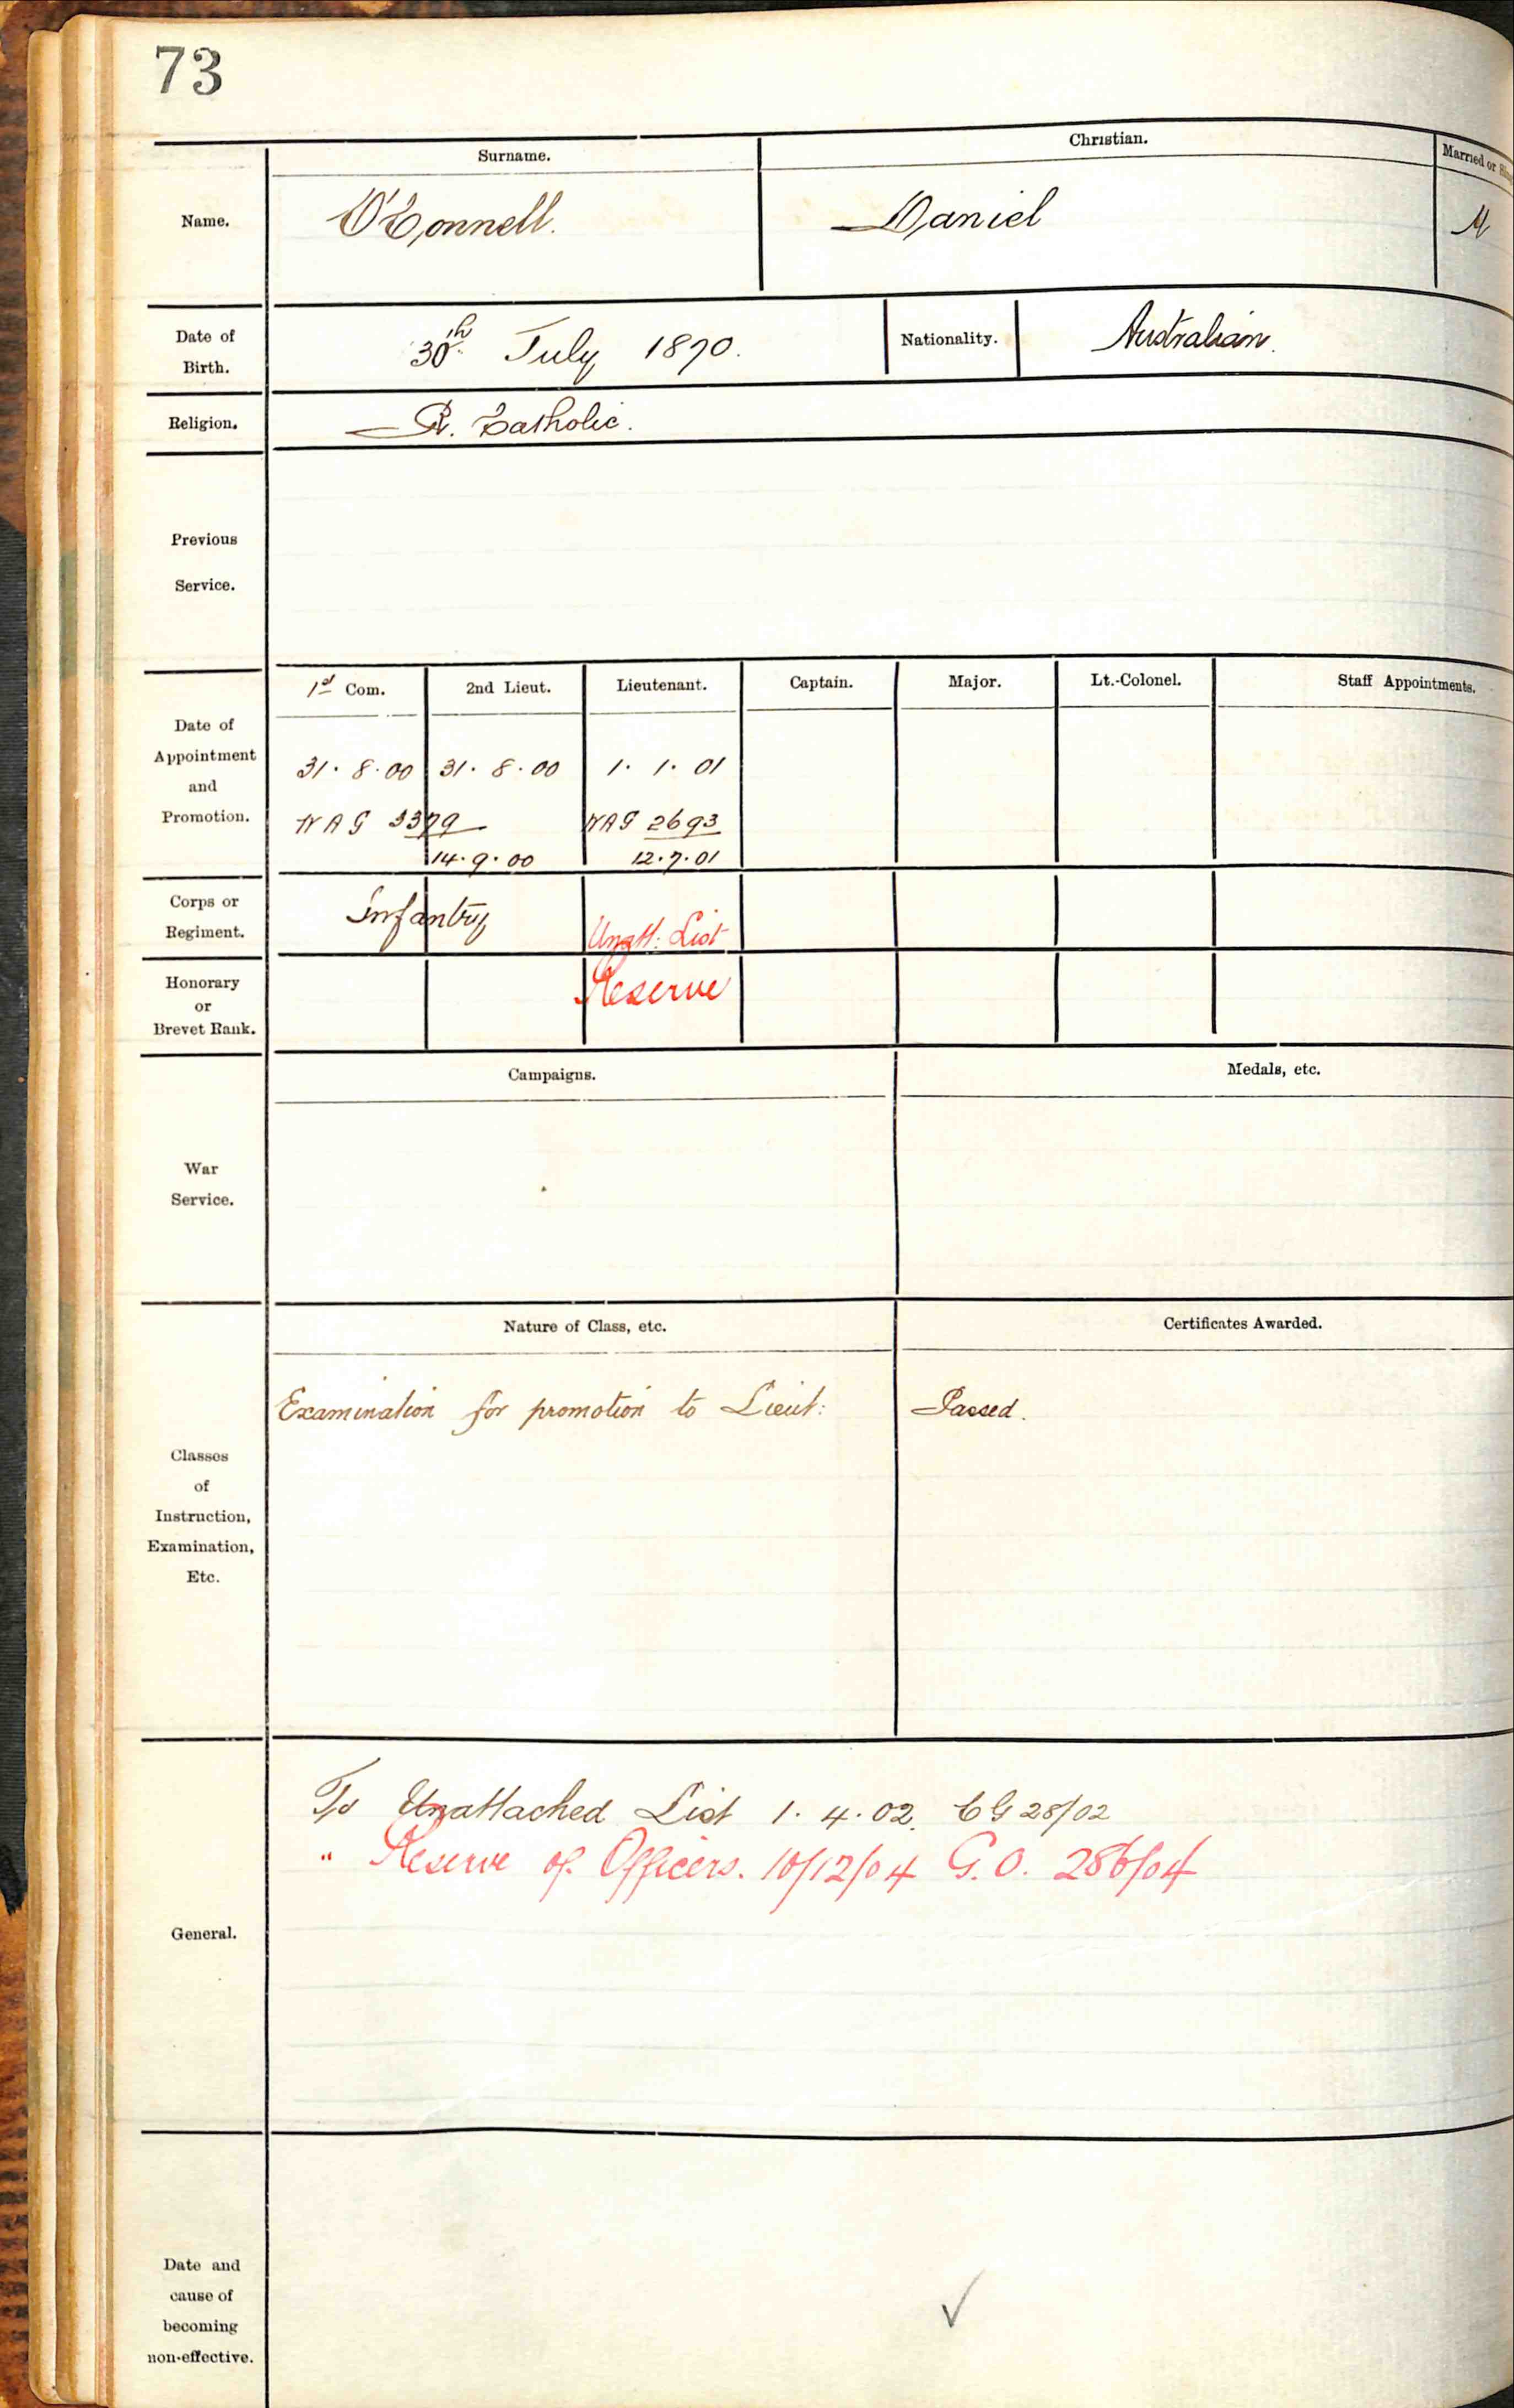 73
Surname. Christian. Married or
Name. O'Connell. Daniel M
Date of
Birth. 30th July 1870. Nationality. Australian.
Religion. R. Catholic.
Previous
Service.
1st Com. 2nd Lieut. Lieutenant. Captain. Major. Lt.-Colonel. Staff Appointments.
Date of
Appointment
and
Promotion.
31. 8. 00 31. 8. 00 1. 1. 01
WAG 3379 WAG 2693
14. 9. 00 12. 7. 01
Corps or
Regiment.
Infantry Unatt: List
Honorary
or
Brevet Rank.
Reserve
Campaigns. Medals, etc.
War
Service.
Nature of Class, etc. Certificates Awarded.
Examination for promotion to Lieut: Passed.
Classes
of
Instruction,
Examination,
Etc.
To Unattached List 1. 4. 02. C G 28/02
" Reserve of Officers. 10/12/04 G.O. 286/04
General.
Date and
cause of
becoming
non-effective.